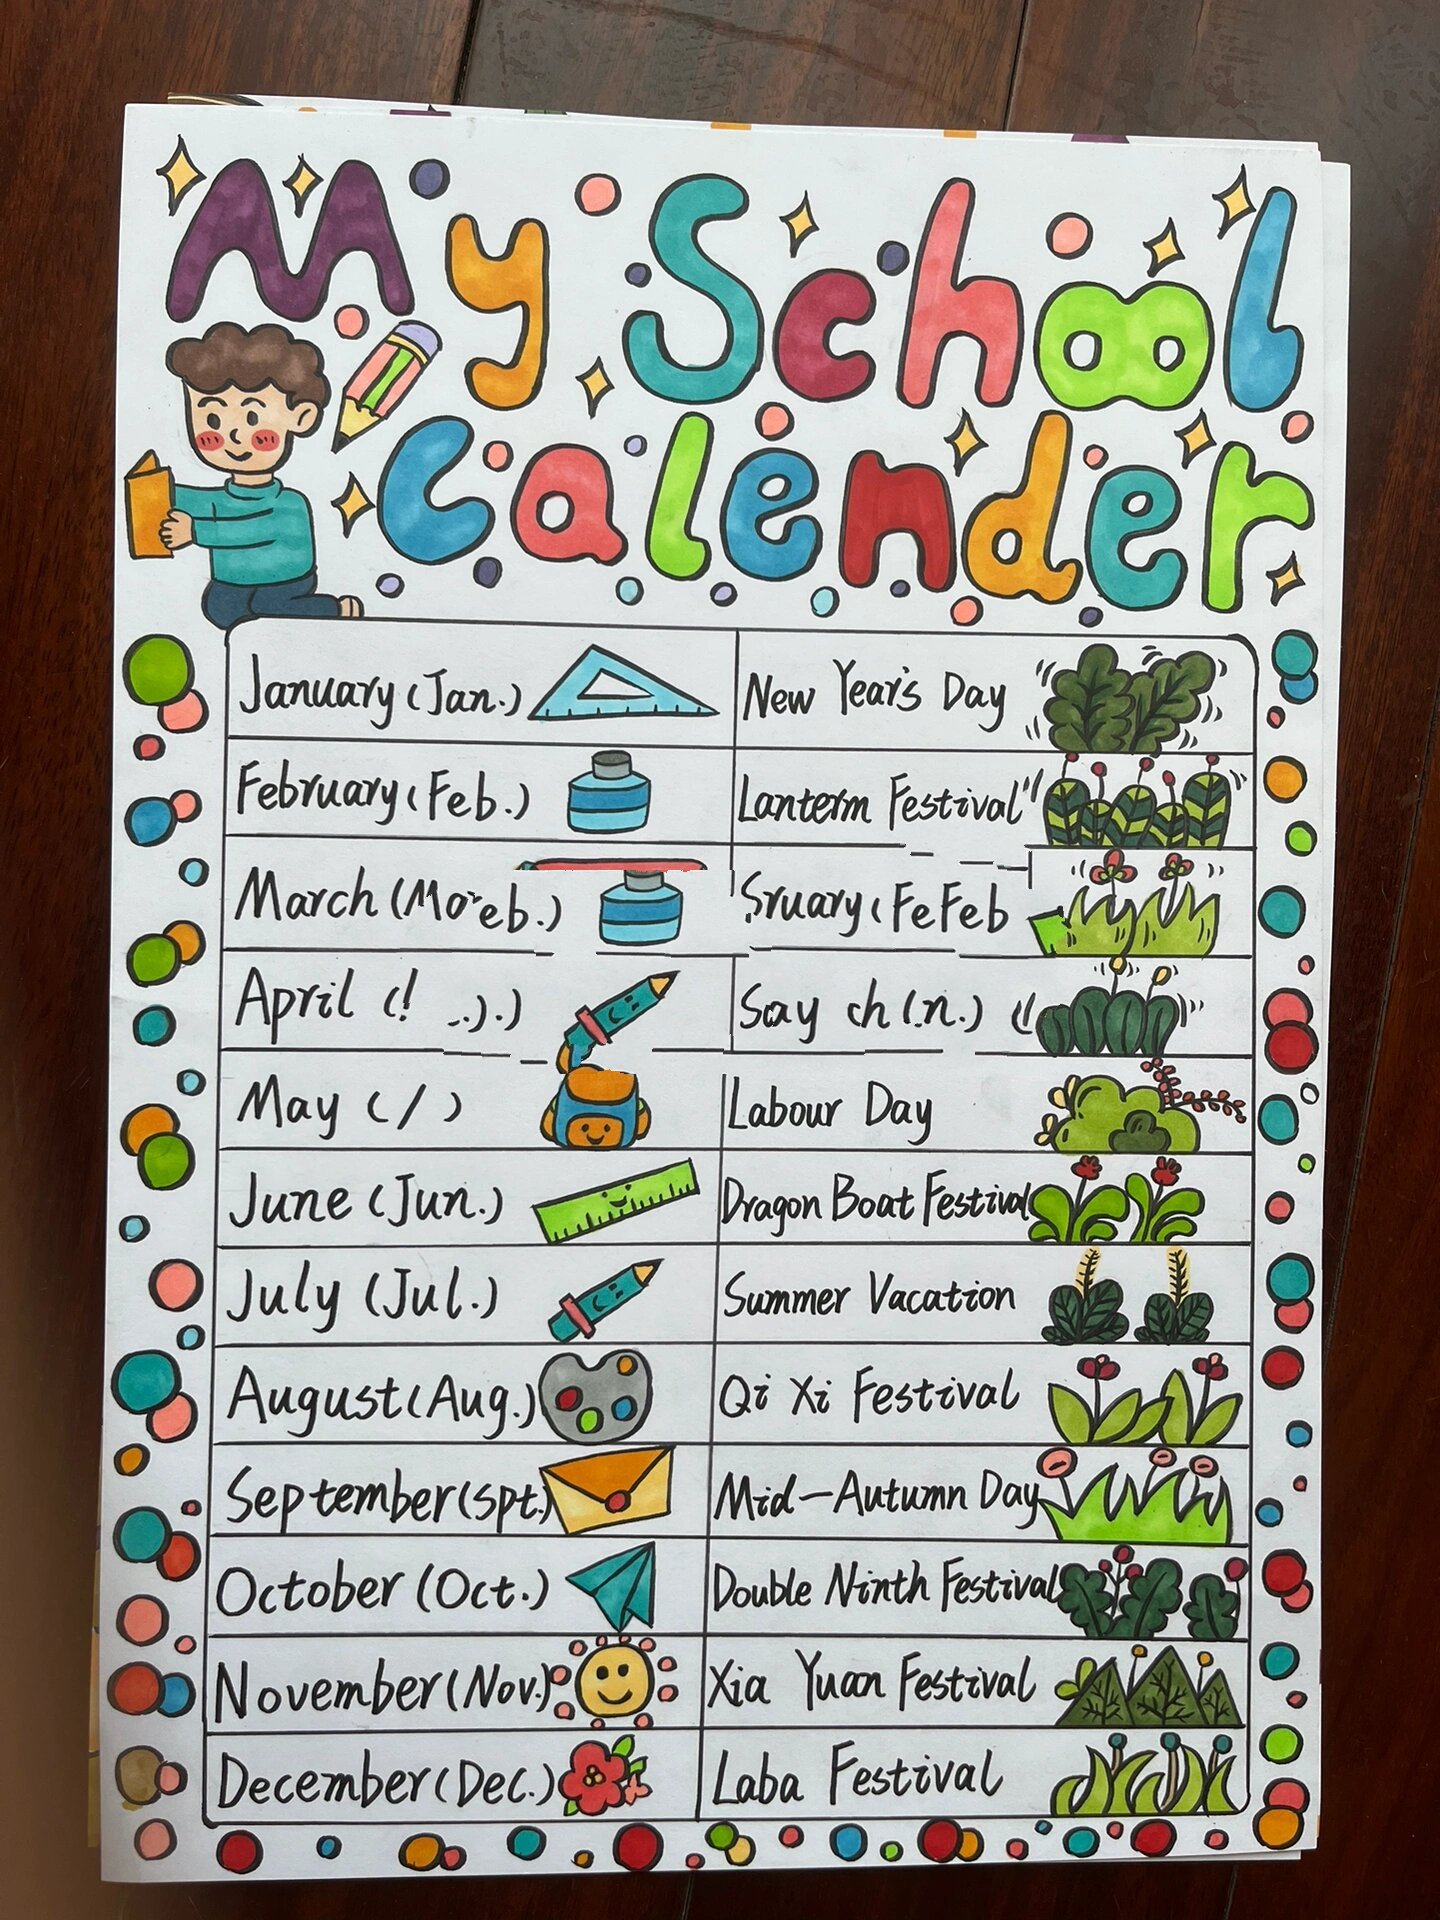 My School
Calender
January (Jan.) New Year's Day
February (Feb.) Lanterm Festival
March
April
May (/) Labour Day
June (Jun.) Dragon Boat Festival
July (Jul.) Summer Vacation
August (Aug.) Qi Xi Festival
September (spt.) Mid-Autumn Day
October (Oct.) Double Ninth Festival
November (Nov.) Xia Yuan Festival
December (Dec.) Laba Festival